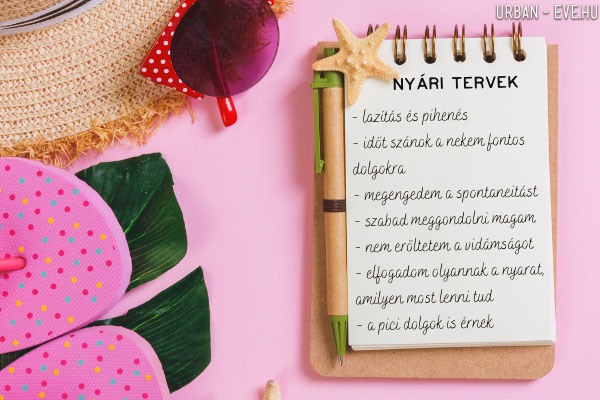 URBAN - EVE.HU
NYÁRI TERVEK
- lazítás és pihenés
- időt szánok a nekem fontos
dolgokra
- megengedem a spontaneitást
- szabad meggondolni magam
- nem erőltetem a vidámságot
- elfogadom olyannak a nyarat,
amilyen most lenni tud
- a pici dolgok is érnek